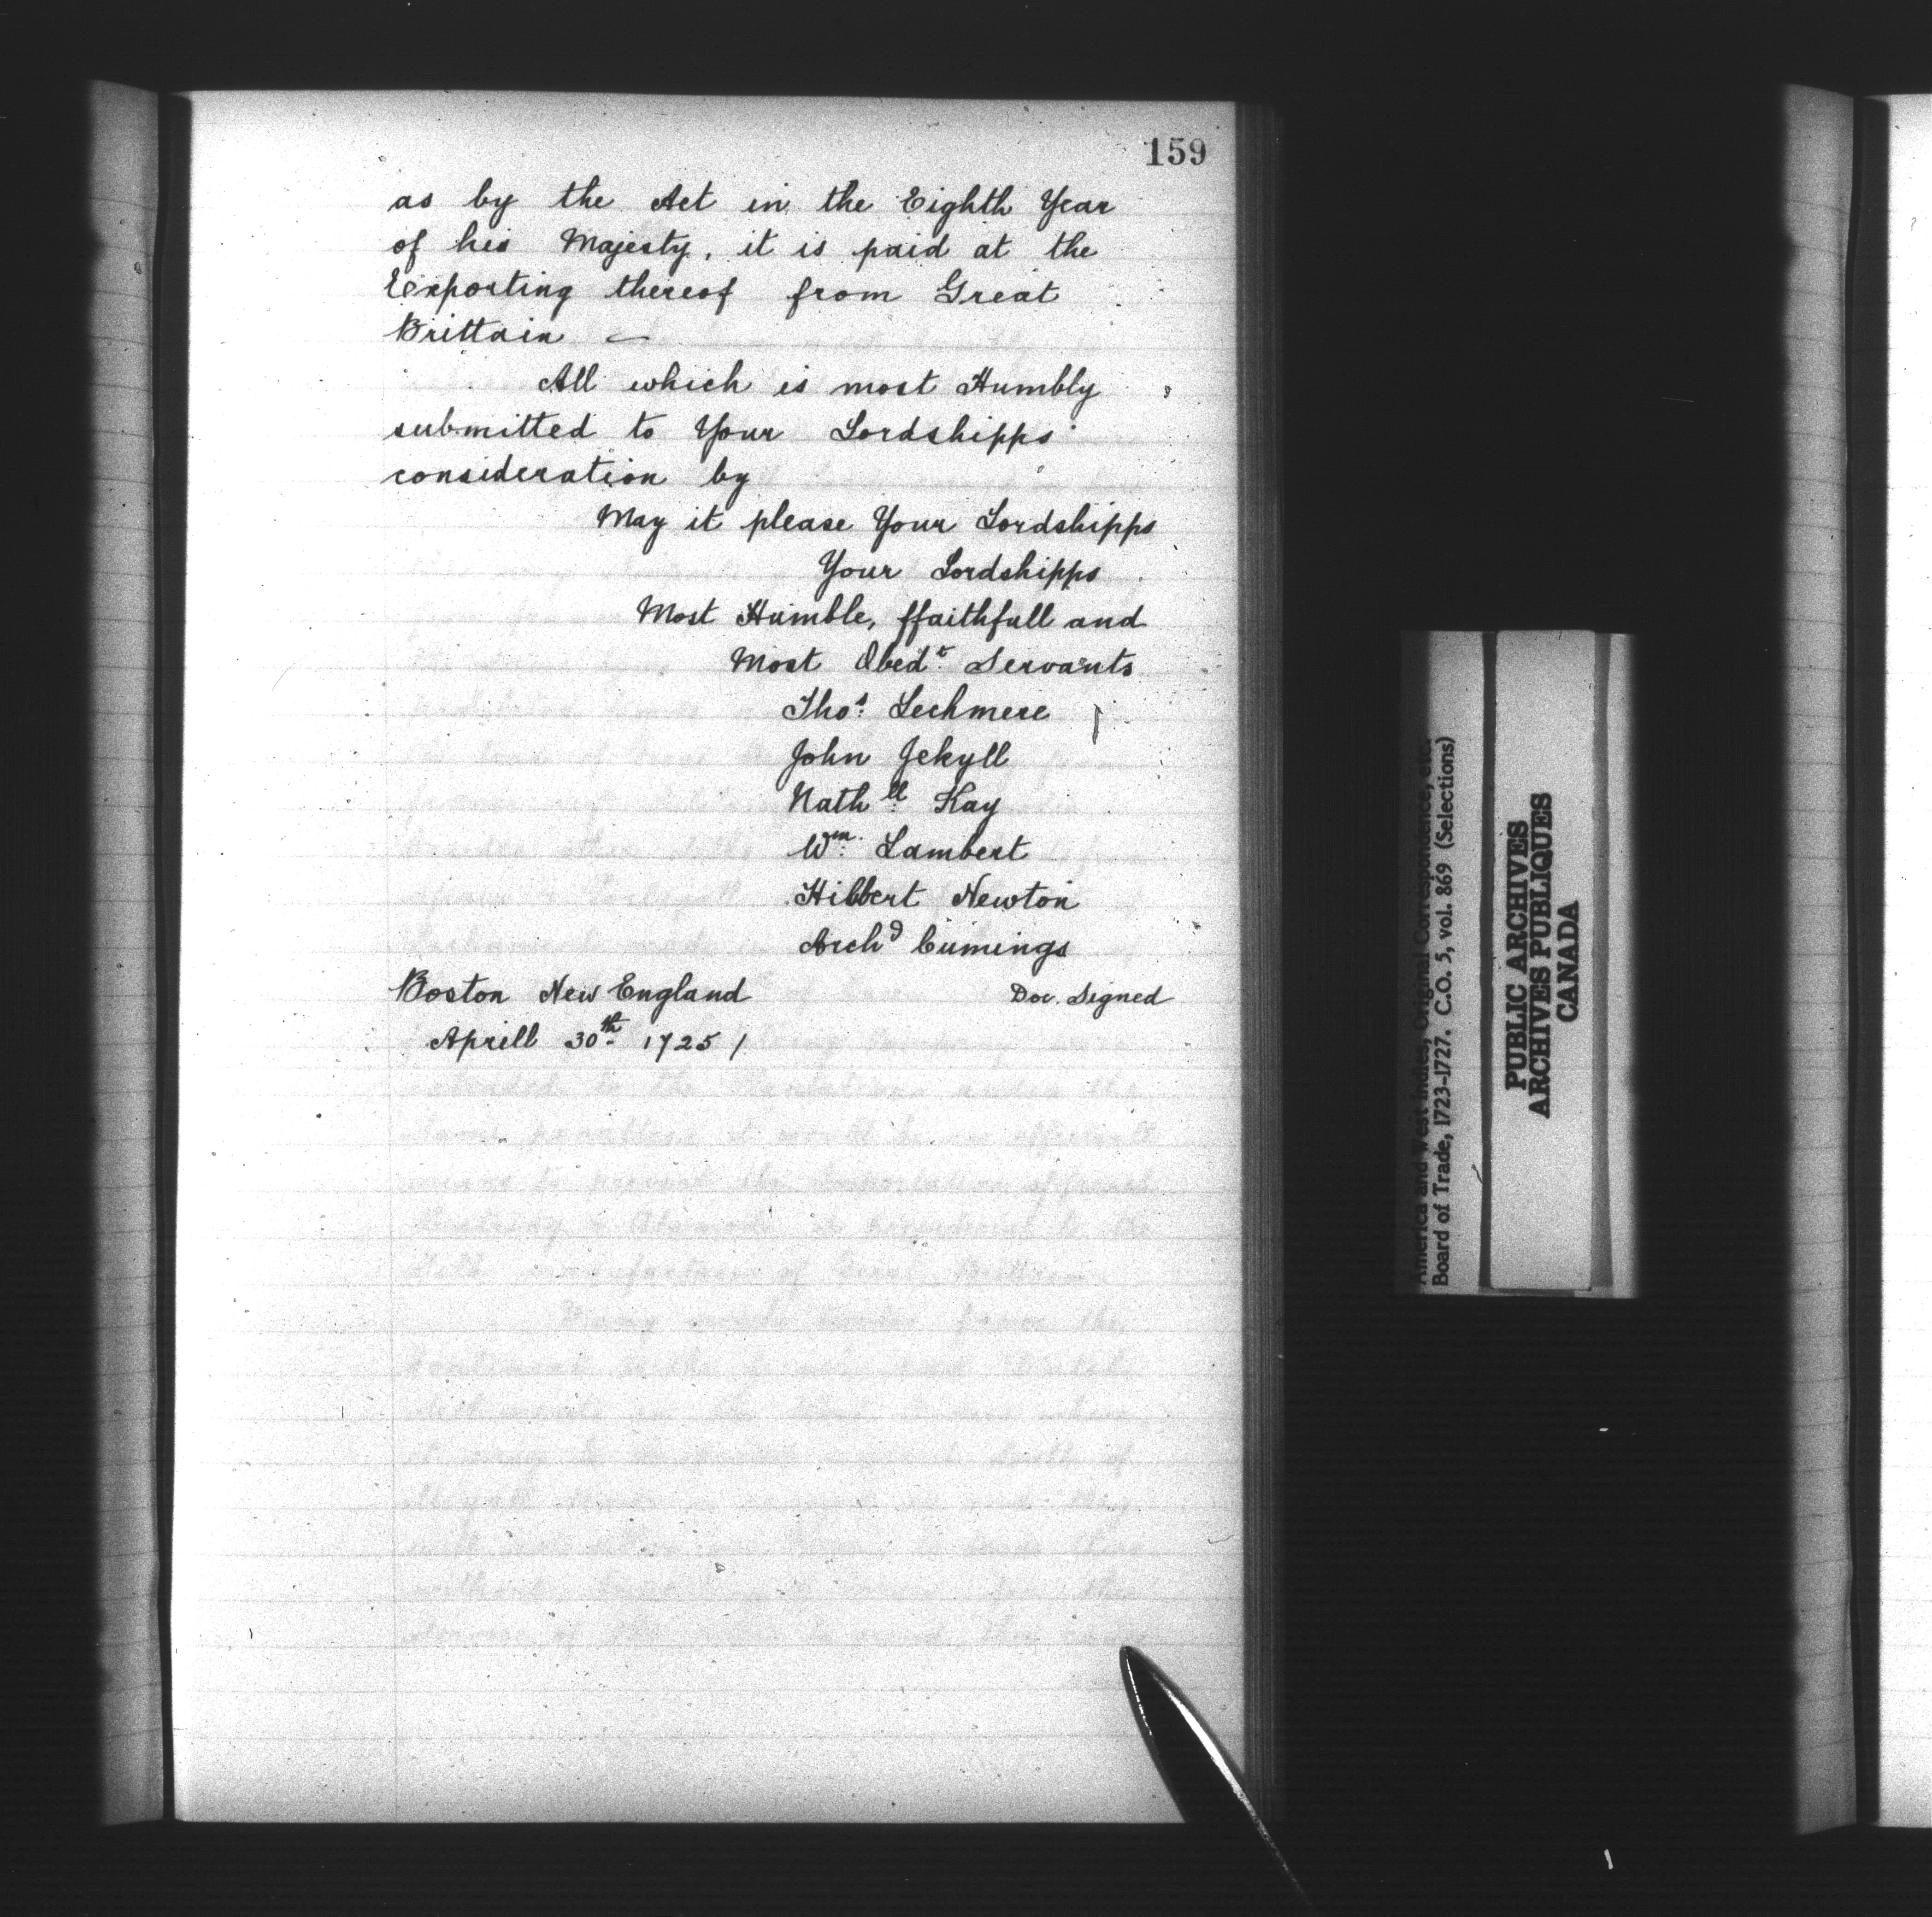 159
as by the Act in the Eighth Year
of his Majesty, it is paid at the
Exporting thereof from Great
Brittain —
All which is most Humbly
submitted to Your Lordshipps
consideration by
May it please Your Lordshipps
Your Lordshipps
Most Humble, ffaithfull and
Most Obedt Servants
Thos. Lechmere
John Jekyll
Nathll Kay
Wm. Lambert
Hibbert Newton
Archd Cumings
Boston New England Doc. Signed
Aprill 30th 1725 /
America and West Indies, Original Correspondence, etc.
Board of Trade, 1723-1727. C.O. 5, vol. 869 (Selections)
PUBLIC ARCHIVES
ARCHIVES PUBLIQUES
CANADA